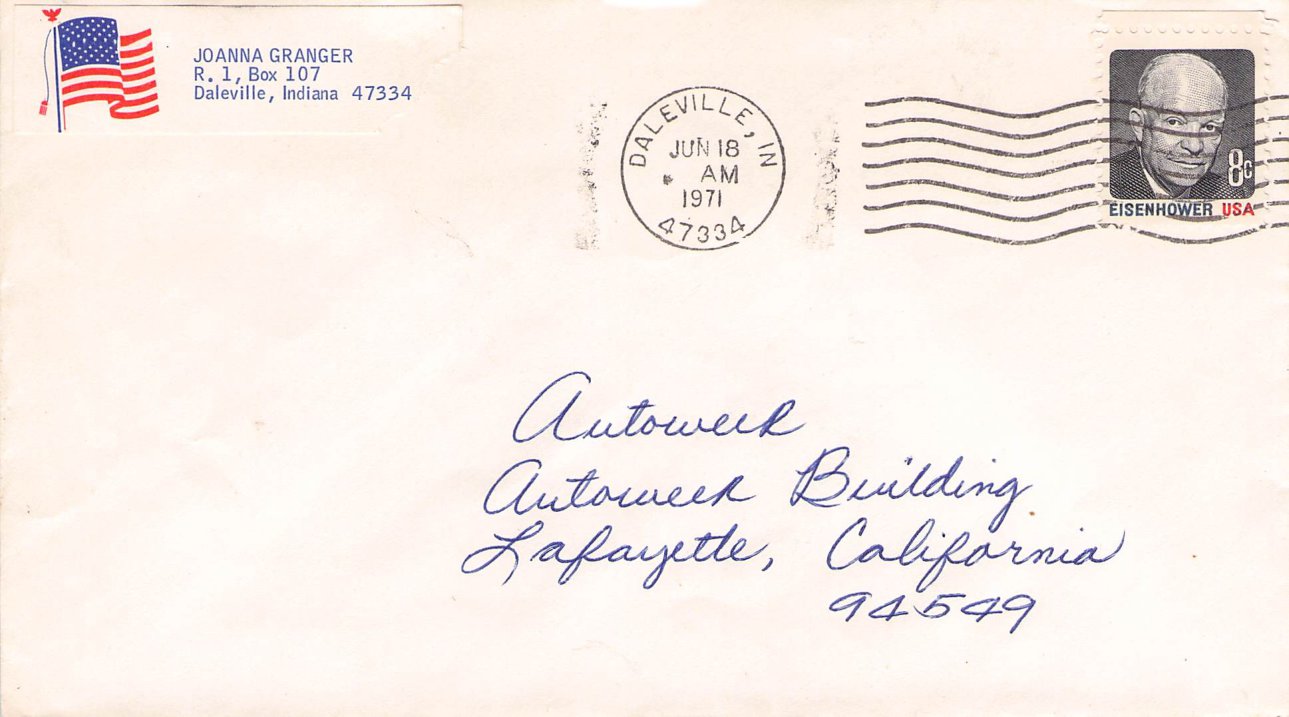 JOANNA GRANGER
R. 1, Box 107
Daleville, Indiana 47334
DALEVILLE, IN
JUN 18
AM
1971
47334
8c
EISENHOWER USA
Autoweek
Autoweek Building
Lafayette, California
94549